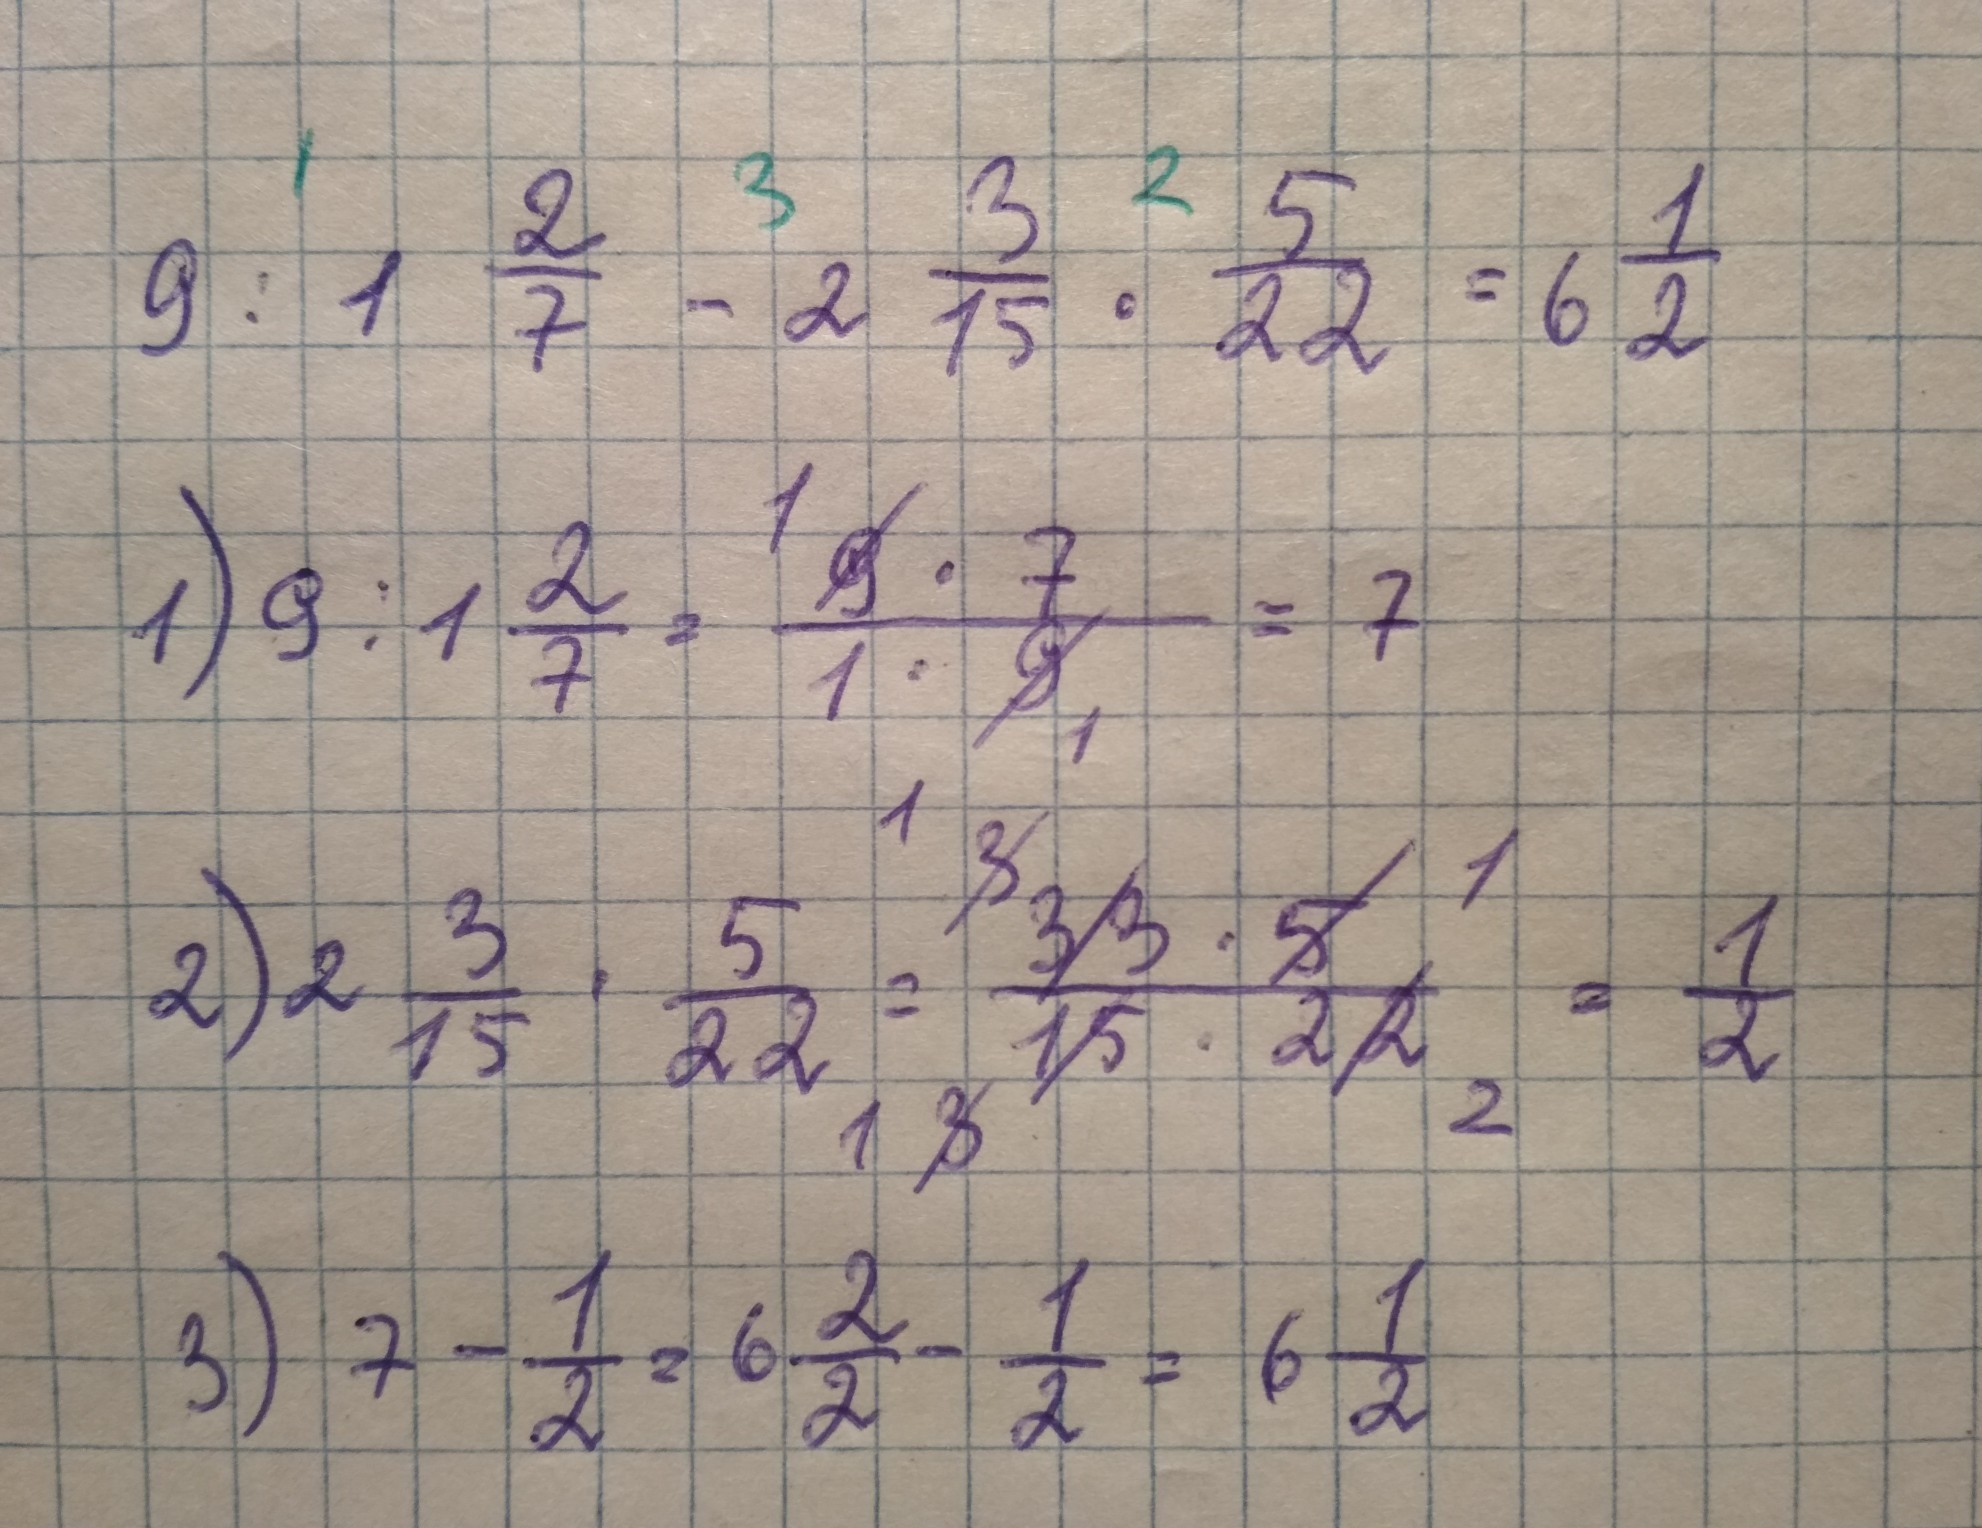 1 3 2
9 : 1 2/7 - 2 3/15 · 5/22 = 6 1/2
1) 9 : 1 2/7 = 1 9 · 7 / 1 · 9 1 = 7
2) 2 3/15 · 5/22 = 1 3 33 · 5 1 / 1 3 15 · 22 2 = 1/2
3) 7 - 1/2 = 6 2/2 - 1/2 = 6 1/2